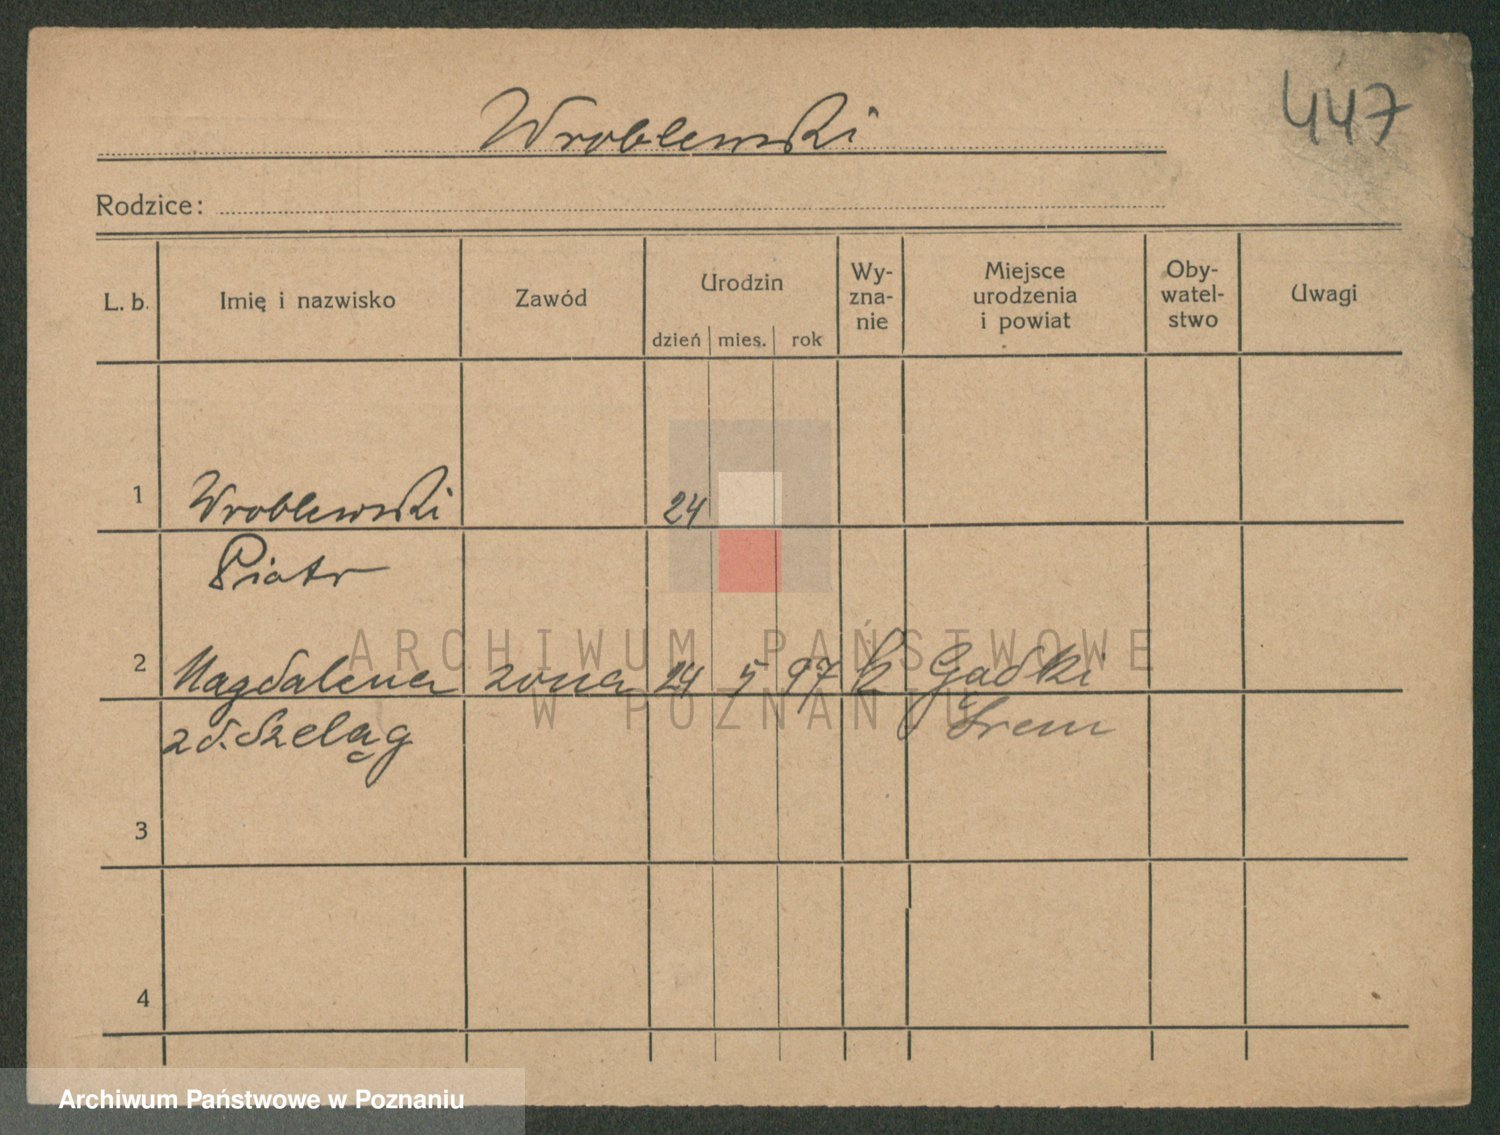 447
Wroblewski
Rodzice:
L. b. Imię i nazwisko Zawód Urodzin Wy-zna-nie Miejsce urodzenia i powiat Oby-watel-stwo Uwagi
dzień mies. rok
1 Wroblewski 24
Piotr
2 Magdalena zona 24 5 97 k Gadki
zd. Szeląg Śrem
3
4
ARCHIWUM PAŃSTWOWE
W POZNANIU
Archiwum Państwowe w Poznaniu